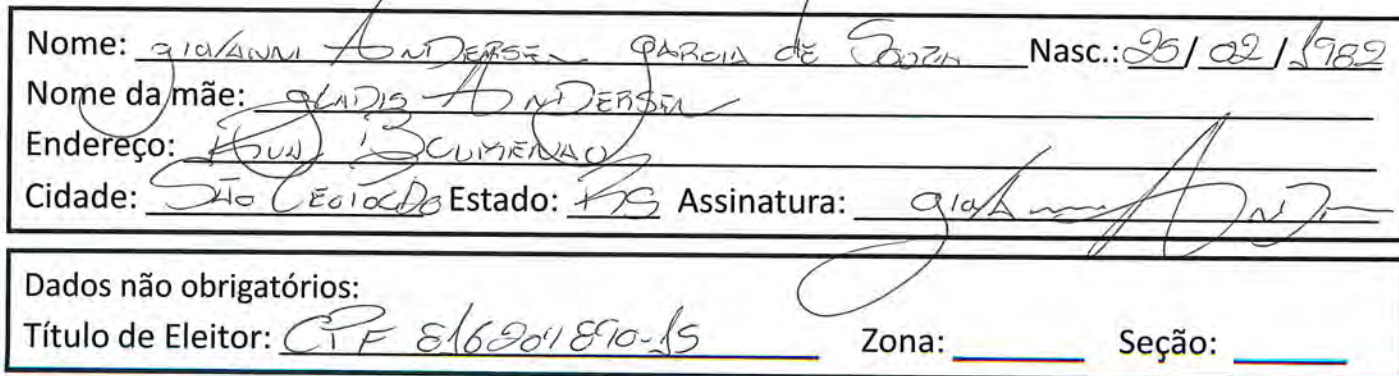 Nome: giovanni Andersen garcia de Souza Nasc.: 25/02/1982
Nome da mãe: gladis Andersen
Endereço: Rua Blumenao
Cidade: São Leopoldo Estado: RS Assinatura:
Dados não obrigatórios:
Título de Eleitor: CPF Zona: Seção: